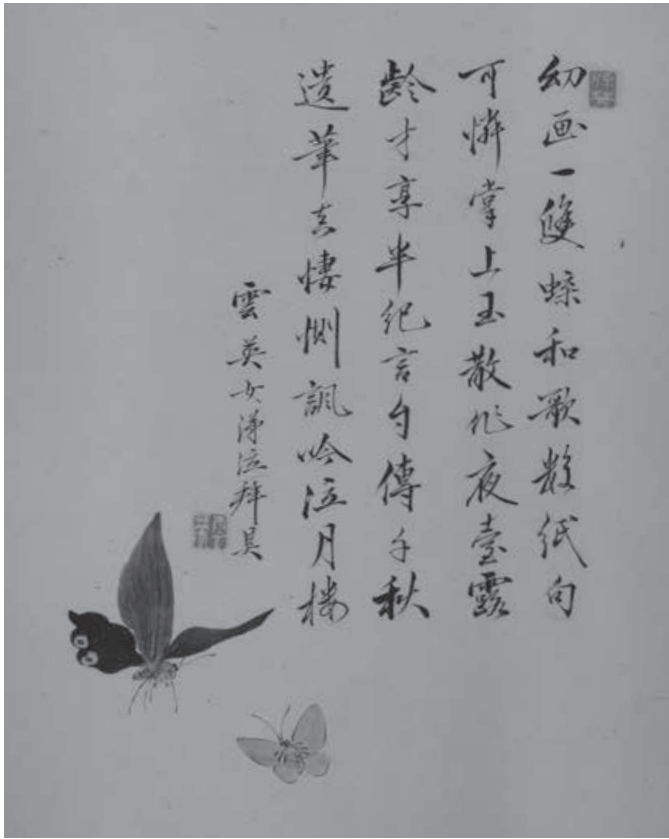 幻画一雙蝶和歌數紙句
可憐掌上玉散作夜臺露
齡才享半紀言勻傳千秋
遺筆真悽惻諷吟泣月樓
雲英女涕泣拜具